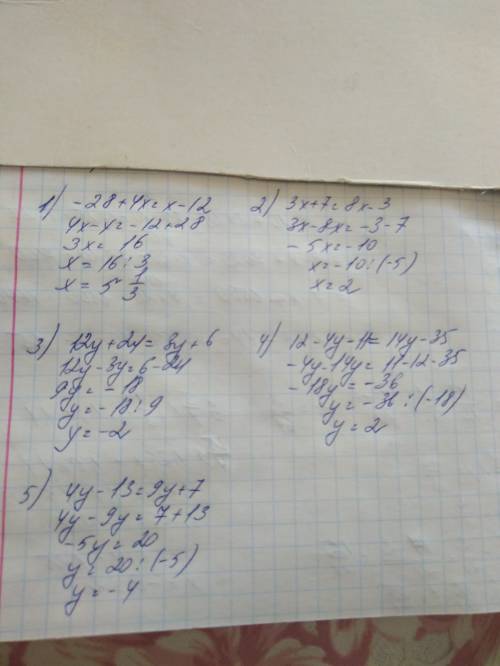 1) -28+4x=x-12
4x-x=-12+28
3x=16
x=16:3
x=5 1/3
2) 3x+7=8x-3
3x-8x=-3-7
-5x=-10
x=-10:(-5)
x=2
3) 12y+24=3y+6
12y-3y=6-24
9y=-18
y=-18:9
y=-2
4) 12-4y-11=14y-35
-4y-14y=11-12-35
-18y=-36
y=-36:(-18)
y=2
5) 4y-13=9y+7
4y-9y=7+13
-5y=20
y=20:(-5)
y=-4